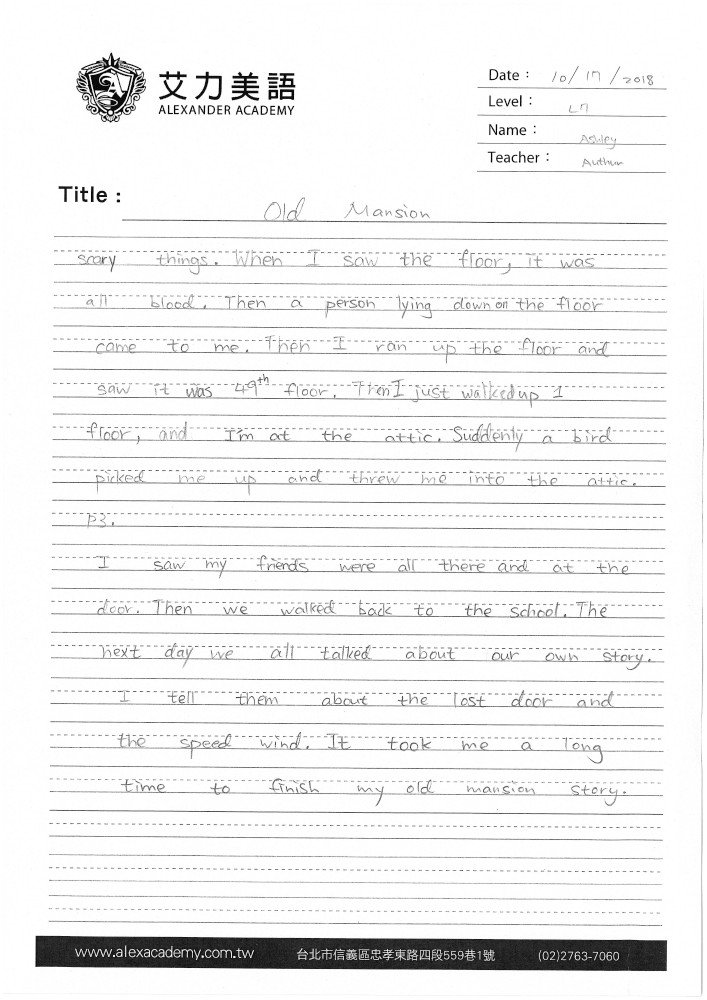 艾力美語
ALEXANDER ACADEMY
Date : 10/17/2018
Level : L7
Name : Ashley
Teacher : Authur
Title : Old Mansion
scary things. When I saw the floor, it was
all blood. Then a person lying down on the floor
came to me. Then I ran up the floor and
saw it was 49th floor. Then I just walked up 1
floor, and I'm at the attic. Suddenly a bird
picked me up and threw me into the attic.
P3.
I saw my friends were all there and at the
door. Then we walked back to the school. The
next day we all talked about our own story.
I tell them about the lost door and
the speed wind. It took me a long
time to finish my old mansion story.
www.alexacademy.com.tw 台北市信義區忠孝東路四段559巷1號 (02)2763-7060